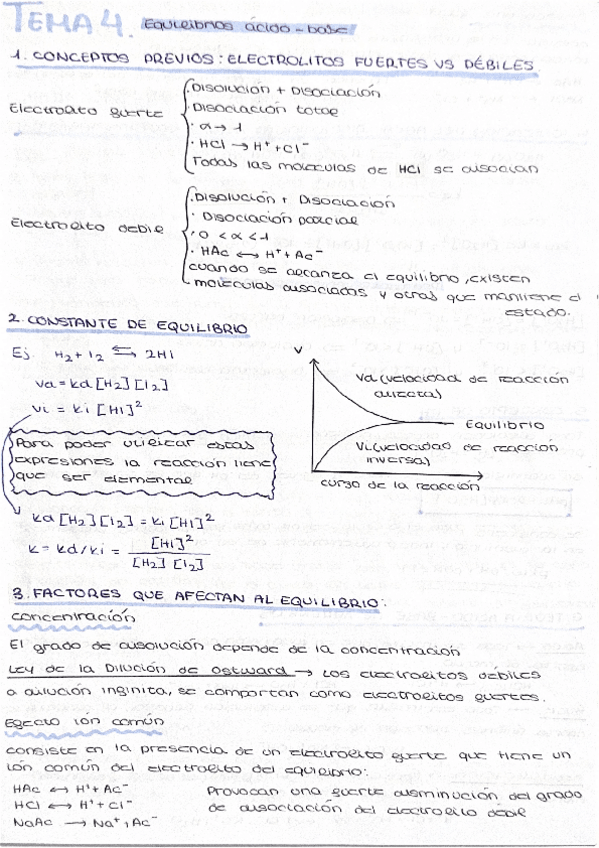 TEMA 4. Equilibrios ácido-base
1. CONCEPTOS PREVIOS: ELECTROLITOS FUERTES VS DÉBILES
Electrolito fuerte
· Disolución + Disociación
· Disociación total
· α → 1
· HCl → H⁺ + Cl⁻
Todas las moléculas de HCl se disocian
Electrolito débil
· Disolución + Disociación
· Disociación parcial
· 0 < α < 1
· HAc ↔ H⁺ + Ac⁻
cuando se alcanza el equilibrio, existen
moléculas disociadas y otras que mantiene el
estado.
2. CONSTANTE DE EQUILIBRIO
Ej. H₂ + I₂ ⇆ 2HI
vd = kd [H₂] [I₂]
vi = ki [HI]²
Para poder utilizar estas
expresiones la reacción tiene
que ser elemental
kd [H₂] [I₂] = ki [HI]²
k = kd/ki = [HI]² / [H₂] [I₂]
v
vd (velocidad de reacción
directa)
Equilibrio
vi (velocidad de reacción
inversa)
curso de la reacción
3. FACTORES QUE AFECTAN AL EQUILIBRIO:
concentración
El grado de disolución depende de la concentración
Ley de la Dilución de Ostward → Los electrolitos débiles
a dilución infinita, se comportan como electrolitos fuertes.
Efecto ión común
consiste en la presencia de un electrolito fuerte que tiene un
ión común del electrolito del equilibrio:
HAc ↔ H⁺ + Ac⁻
HCl ↔ H⁺ + Cl⁻
NaAc → Na⁺ + Ac⁻
Provocan una fuerte disminución del grado
de disociación del electrolito débil